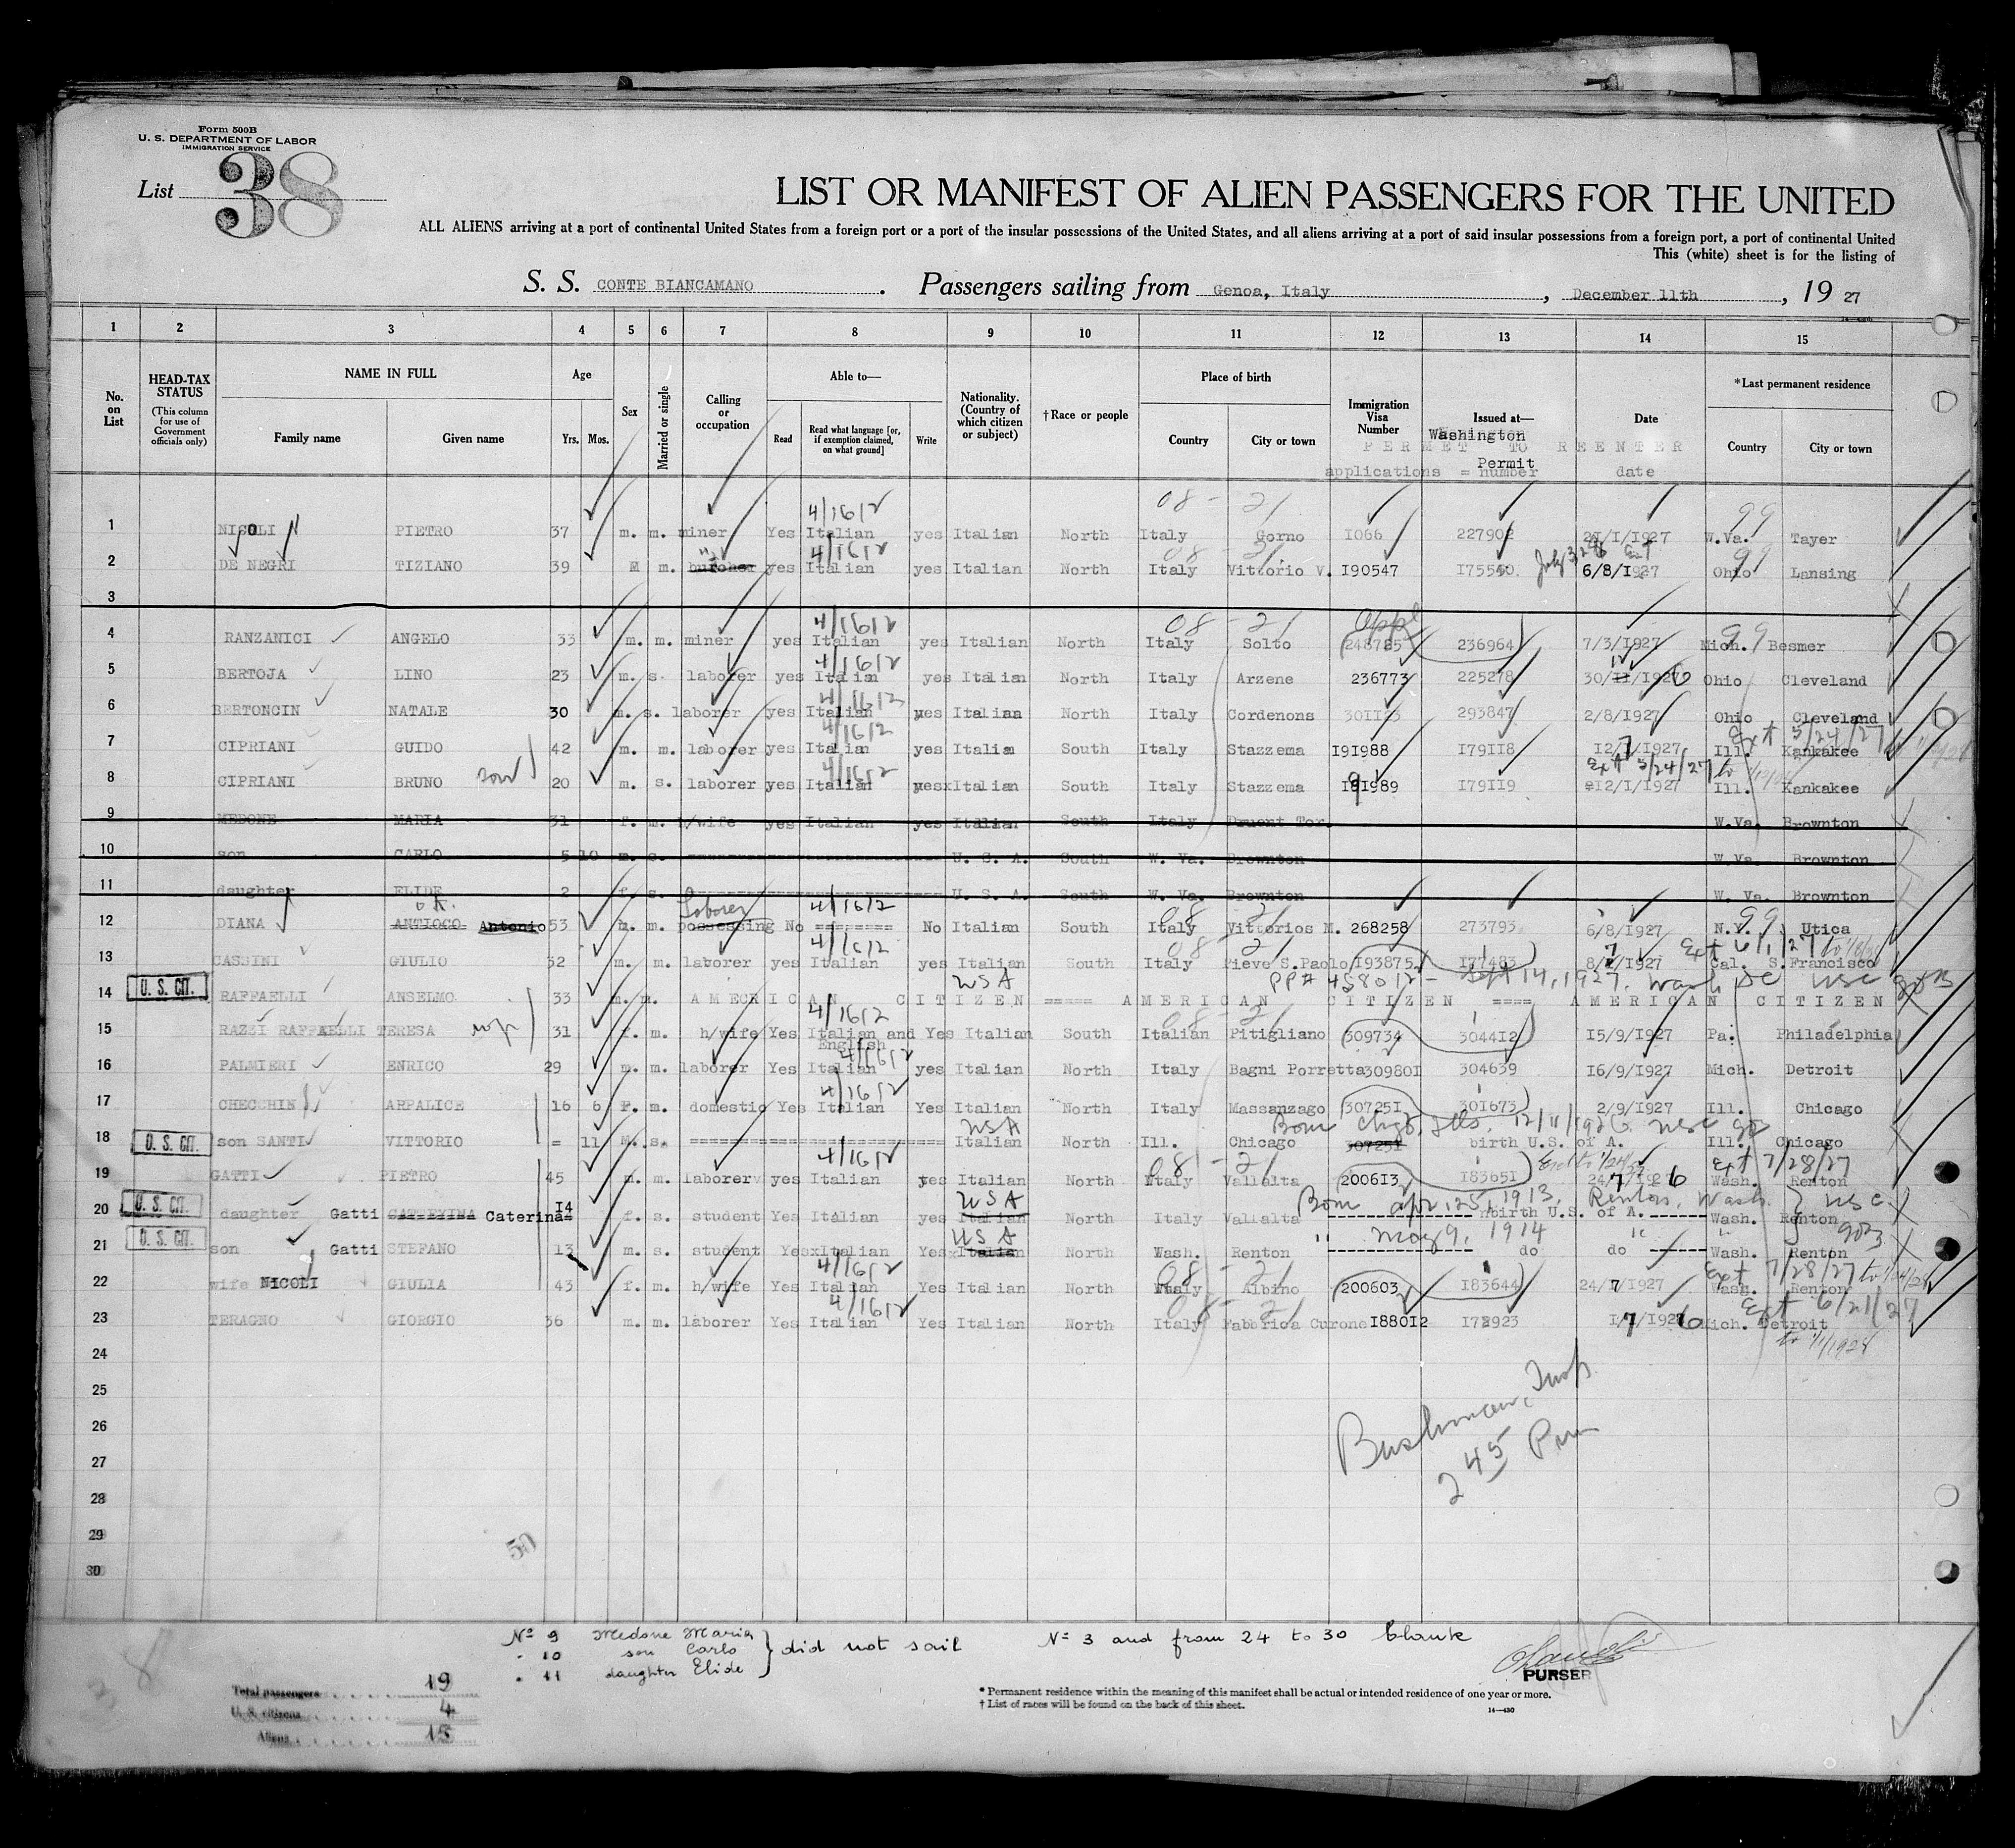 Form 500B
U. S. DEPARTMENT OF LABOR
IMMIGRATION SERVICE
List 38
LIST OR MANIFEST OF ALIEN PASSENGERS FOR THE UNITED
ALL ALIENS arriving at a port of continental United States from a foreign port or a port of the insular possessions of the United States, and all aliens arriving at a port of said insular possessions from a foreign port, a port of continental United
This (white) sheet is for the listing of
S. S. CONTE BIANCAMANO. Passengers sailing from Genoa, Italy, December 11th, 19 27
1 2 3 4 5 6 7 8 9 10 11 12 13 14 15
No. on List
HEAD-TAX STATUS (This column for use of Government officials only)
NAME IN FULL
Family name Given name
Age
Yrs. Mos.
Sex
Married or single
Calling or occupation
Able to—
Read Read what language [or, if exemption claimed, on what ground] Write
Nationality. (Country of which citizen or subject)
†Race or people
Place of birth
Country City or town
Immigration Visa Number
Issued at—
Date
Washington
PERMET TO REENTER
applications = Permit number date
*Last permanent residence
Country City or town
4/1612 08 - 21 99
1 NICOLI PIETRO 37 m. m. miner Yes Italian yes Italian North Italy Gorno 1066 227902 21/1/1927 W.Va. Tayer
4/1612 08 - 21 99
2 DE NEGRI TIZIANO 39 M m. butcher yes Italian yes Italian North Italy Vittorio V. 190547 175540 6/8/1927 Ohio Lansing
3
4/1612 08 - 21 appl 99
4 RANZANICI ANGELO 33 m. m. miner yes Italian yes Italian North Italy Solto 248785 236964 7/3/1927 Mich. Besmer
4/1612
5 BERTOJA LINO 23 m. s. laborer yes Italian yes Italian North Italy Arzene 236773 225278 30/11/1926 Ohio Cleveland
4/1612
6 BERTONCIN NATALE 30 m. s. laborer yes Italian yes Italian North Italy Cordenons 301123 293847 2/8/1927 Ohio Cleveland
4/1612 Ext 5/24/27
7 CIPRIANI GUIDO 42 m. m. laborer yes Italian yes Italia South Italy Stazzema 191988 179118 12/1/1927 Ill. Kankakee
son 4/1612 Ext 5/24/27 to
8 CIPRIANI BRUNO 20 m. s. laborer yes Italian yesxItalian South Italy Stazzema 191989 179119 12/1/1927 Ill. Kankakee
9 MEDONE MARIA 31 f. m. h/wife yes Italian yes Italian South Italy Druent Tor. W.Va. Brownton
10 son CARLO 5 10 m. s. U. S. A. South W. Va. Brownton W.Va. Brownton
11 daughter ELIDE 2 f. s. U. S. A. South W. Va. Brownton W. Va. Brownton
Laborer 4/1612 08 - 21 99
12 DIANA ANTIOCO Antonio 53 m. m. possessing No ======== No Italian South Italy Vittorios M. 268258 273793 6/8/1927 N.Y. Utica
4/1612 08 - 21 Ext 6/1/27
13 CASSINI GIULIO 32 m. m. laborer yes Italian yes Italian South Italy Pieve S.Paolo 193875 177483 8/1/1927 Cal. S.Francisco
U. S. CIT. USA PP# 458012 - Sept 14, 1927. Wash DC USC
14 RAFFAELLI ANSELMO 33 m. m. AMECRICAN CITIZEN ===== AMERICAN CITIZEN ==== AMERICAN CITIZEN
4/1612 08 - 21
15 RAZZI RAFFAELLI TERESA wife 31 f. m. h/wife Yes Italian and English Yes Italian South Italian Pitigliano 309734 304412 15/9/1927 Pa. Philadelphia
4/1612
16 PALMIERI ENRICO 29 m. m. laborer Yes Italian yes Italian North Italy Bagni Porretta 309801 304639 16/9/1927 Mich. Detroit
4/1612
17 CHECCHIN ARPALICE 16 6 F. m. domestic Yes Italian Yes Italian North Italy Massanzago 307251 301673 2/9/1927 Ill. Chicago
USA Born Chgo, Ills. 12/11/1926
18 U. S. CIT. son SANTI VITTORIO = 11 M. s. Italian North Ill. Chicago 307251 birth U.S. of A. Ill. Chicago
4/1612 08 - 21 Ext 7/28/27
19 GATTI PIETRO 45 m. m. laborer yes Italian yes Italian North Italy Vallalta 200613 183651 24/7/1926 Wash. Renton
U. S. CIT. USA Born apr. 25, 1913. Renton, Wash. USC
20 daughter Gatti CATERINA Caterina 14 f. s. student Yes Italian yes Italian North Italy Vallalta birth U.S. of A. Wash. Renton
U. S. CIT. USA " may 9, 1914
21 son Gatti STEFANO 13 m. s. student YesxItalian YesxItalian North Wash. Renton do do Wash. Renton
4/1612 08 - 21 Ext 7/28/27 to 1/24/28
22 wife NICOLI GIULIA 43 f. m. h/wife Yes Italian Yes Italian North Italy Albino 200603 183644 24/7/1927 Wash. Renton
4/1612 08 - 21 Ext 6/21/27
23 TERAGNO GIORGIO 36 m. m. laborer Yes Italian Yes Italian North Italy Fabbrica Curone 188012 172923 1/7/1926 Mich. Detroit
to 1/1/1928
24
25
26
27
28
29
30
Bushman, Insp.
2 45 Pm
50
Nº 9 Medone Maria
" 10 son Carlo } did not sail
" 11 daughter Elide
Nº 3 and from 24 to 30 blank
PURSER
38
Total passengers 19
U. S. citizens 4
Aliens 15
* Permanent residence within the meaning of this manifest shall be actual or intended residence of one year or more.
† List of races will be found on the back of this sheet.
14—430